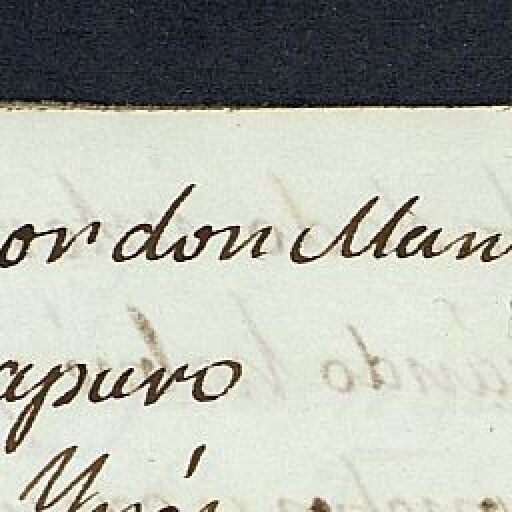 or don Man
apuro